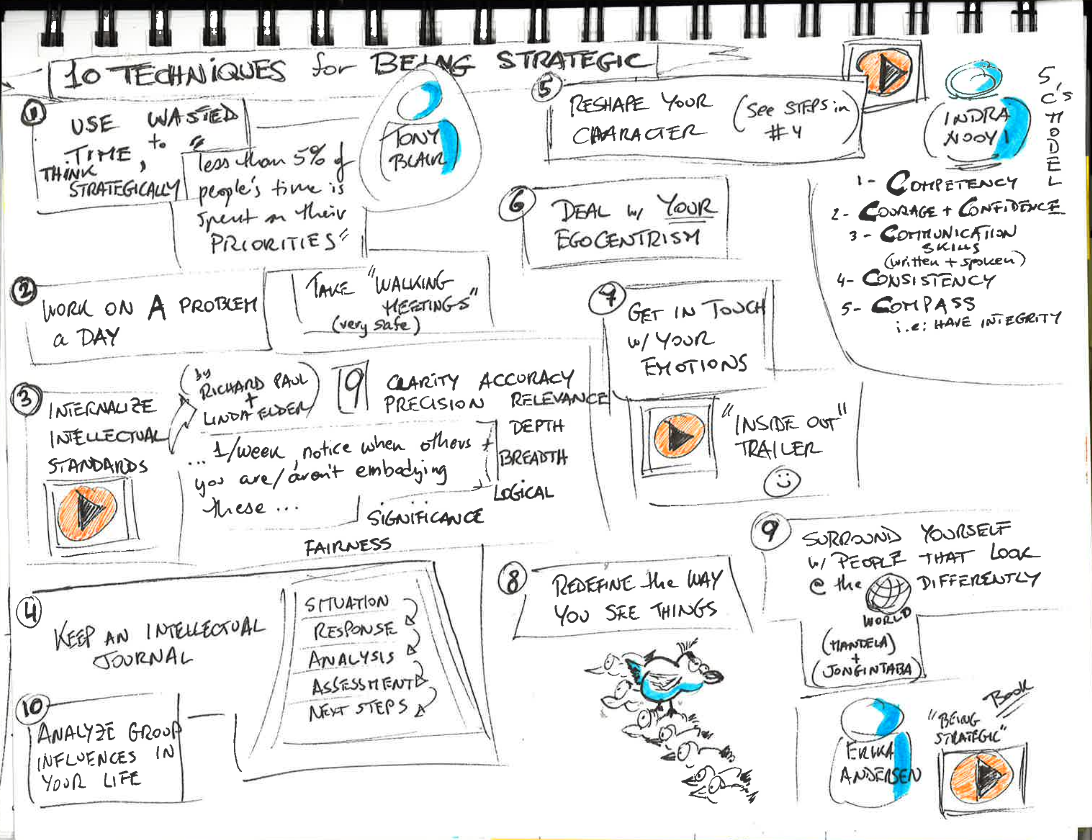 10 TECHNIQUES for BEING STRATEGIC
1
USE WASTED
TIME, to
THINK
STRATEGICALLY
"less than 5% of
people's time is
spent on their
PRIORITIES"
TONY
BLAIR
2
WORK ON A PROBLEM
a DAY
TAKE "WALKING
MEETINGS"
(very safe)
3
INTERNALIZE
INTELLECTUAL
STANDARDS
(by
RICHARD PAUL
+
LINDA ELDER)
9
CLARITY ACCURACY
PRECISION RELEVANCE
DEPTH
BREADTH
LOGICAL
SIGNIFICANCE
FAIRNESS
... 1/week, notice when others +
you are/aren't embodying
these ...
4
KEEP AN INTELLECTUAL
JOURNAL
SITUATION
RESPONSE
ANALYSIS
ASSESSMENT
NEXT STEPS
10
ANALYZE GROUP
INFLUENCES IN
YOUR LIFE
5
RESHAPE YOUR
CHARACTER
(see STEPS in
#4)
INDRA
NOOYI
5 C'S MODEL
1- COMPETENCY
2- COURAGE + CONFIDENCE
3- COMMUNICATION
SKILLS
(written + spoken)
4- CONSISTENCY
5- COMPASS
i.e: HAVE INTEGRITY
6
DEAL w/ YOUR
EGOCENTRISM
7
GET IN TOUCH
w/ YOUR
EMOTIONS
"INSIDE OUT"
TRAILER
8
REDEFINE the WAY
YOU SEE THINGS
9
SURROUND YOURSELF
w/ PEOPLE THAT LOOK
@ the DIFFERENTLY
WORLD
(MANDELA)
+
(JONGINTABA)
ERIKA
ANDERSEN
Book
"BEING
STRATEGIC"